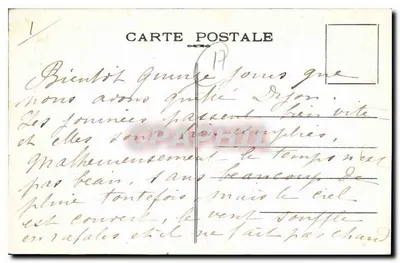 1
CARTE POSTALE
17
Bientôt quinze jours que
nous avons quitté Dijon.
Les journées passent bien vite
et elles sont bien remplies,
malheureusement le temps n'est
pas beau, sans beaucoup de
pluie toutefois, mais le ciel
est couvert, le vent souffle
en rafales et il ne fait pas chaud